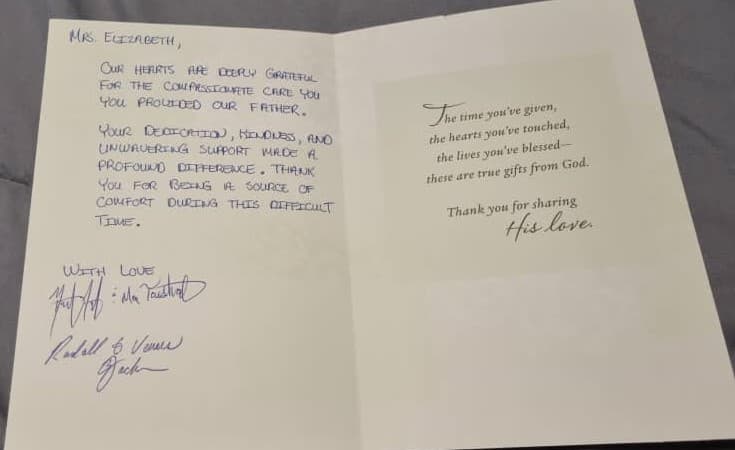 MRS. ELIZABETH,
OUR HEARTS ARE DEEPLY GRATEFUL
FOR THE COMPASSIONATE CARE YOU
YOU PROVIDED OUR FATHER.
YOUR DEDICATION, KINDNESS, AND
UNWAVERING SUPPORT MADE A
PROFOUND DIFFERENCE. THANK
YOU FOR BEING A SOURCE OF
COMFORT DURING THIS DIFFICULT
TIME.
WITH LOVE
Randall & Venus
The time you've given,
the hearts you've touched,
the lives you've blessed—
these are true gifts from God.
Thank you for sharing
His love.